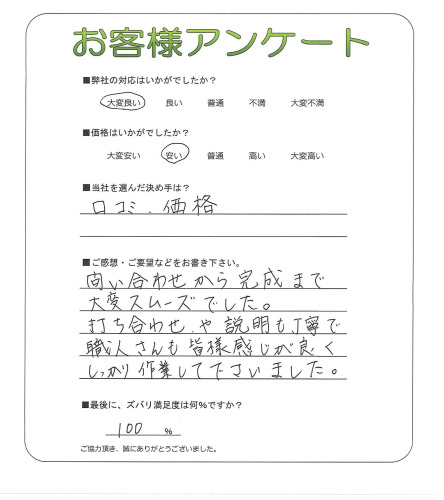 お客様アンケート
■弊社の対応はいかがでしたか?
大変良い 良い 普通 不満 大変不満
■価格はいかがでしたか?
大変安い 安い 普通 高い 大変高い
■当社を選んだ決め手は?
口コミ、価格
■ご感想・ご要望などをお書き下さい。
問い合わせから完成まで
大変スムーズでした。
打ち合わせや説明も丁寧で
職人さんも皆様感じが良く
しっかり作業して下さいました。
■最後に、ズバリ満足度は何%ですか?
100 %
ご協力頂き、誠にありがとうございました。